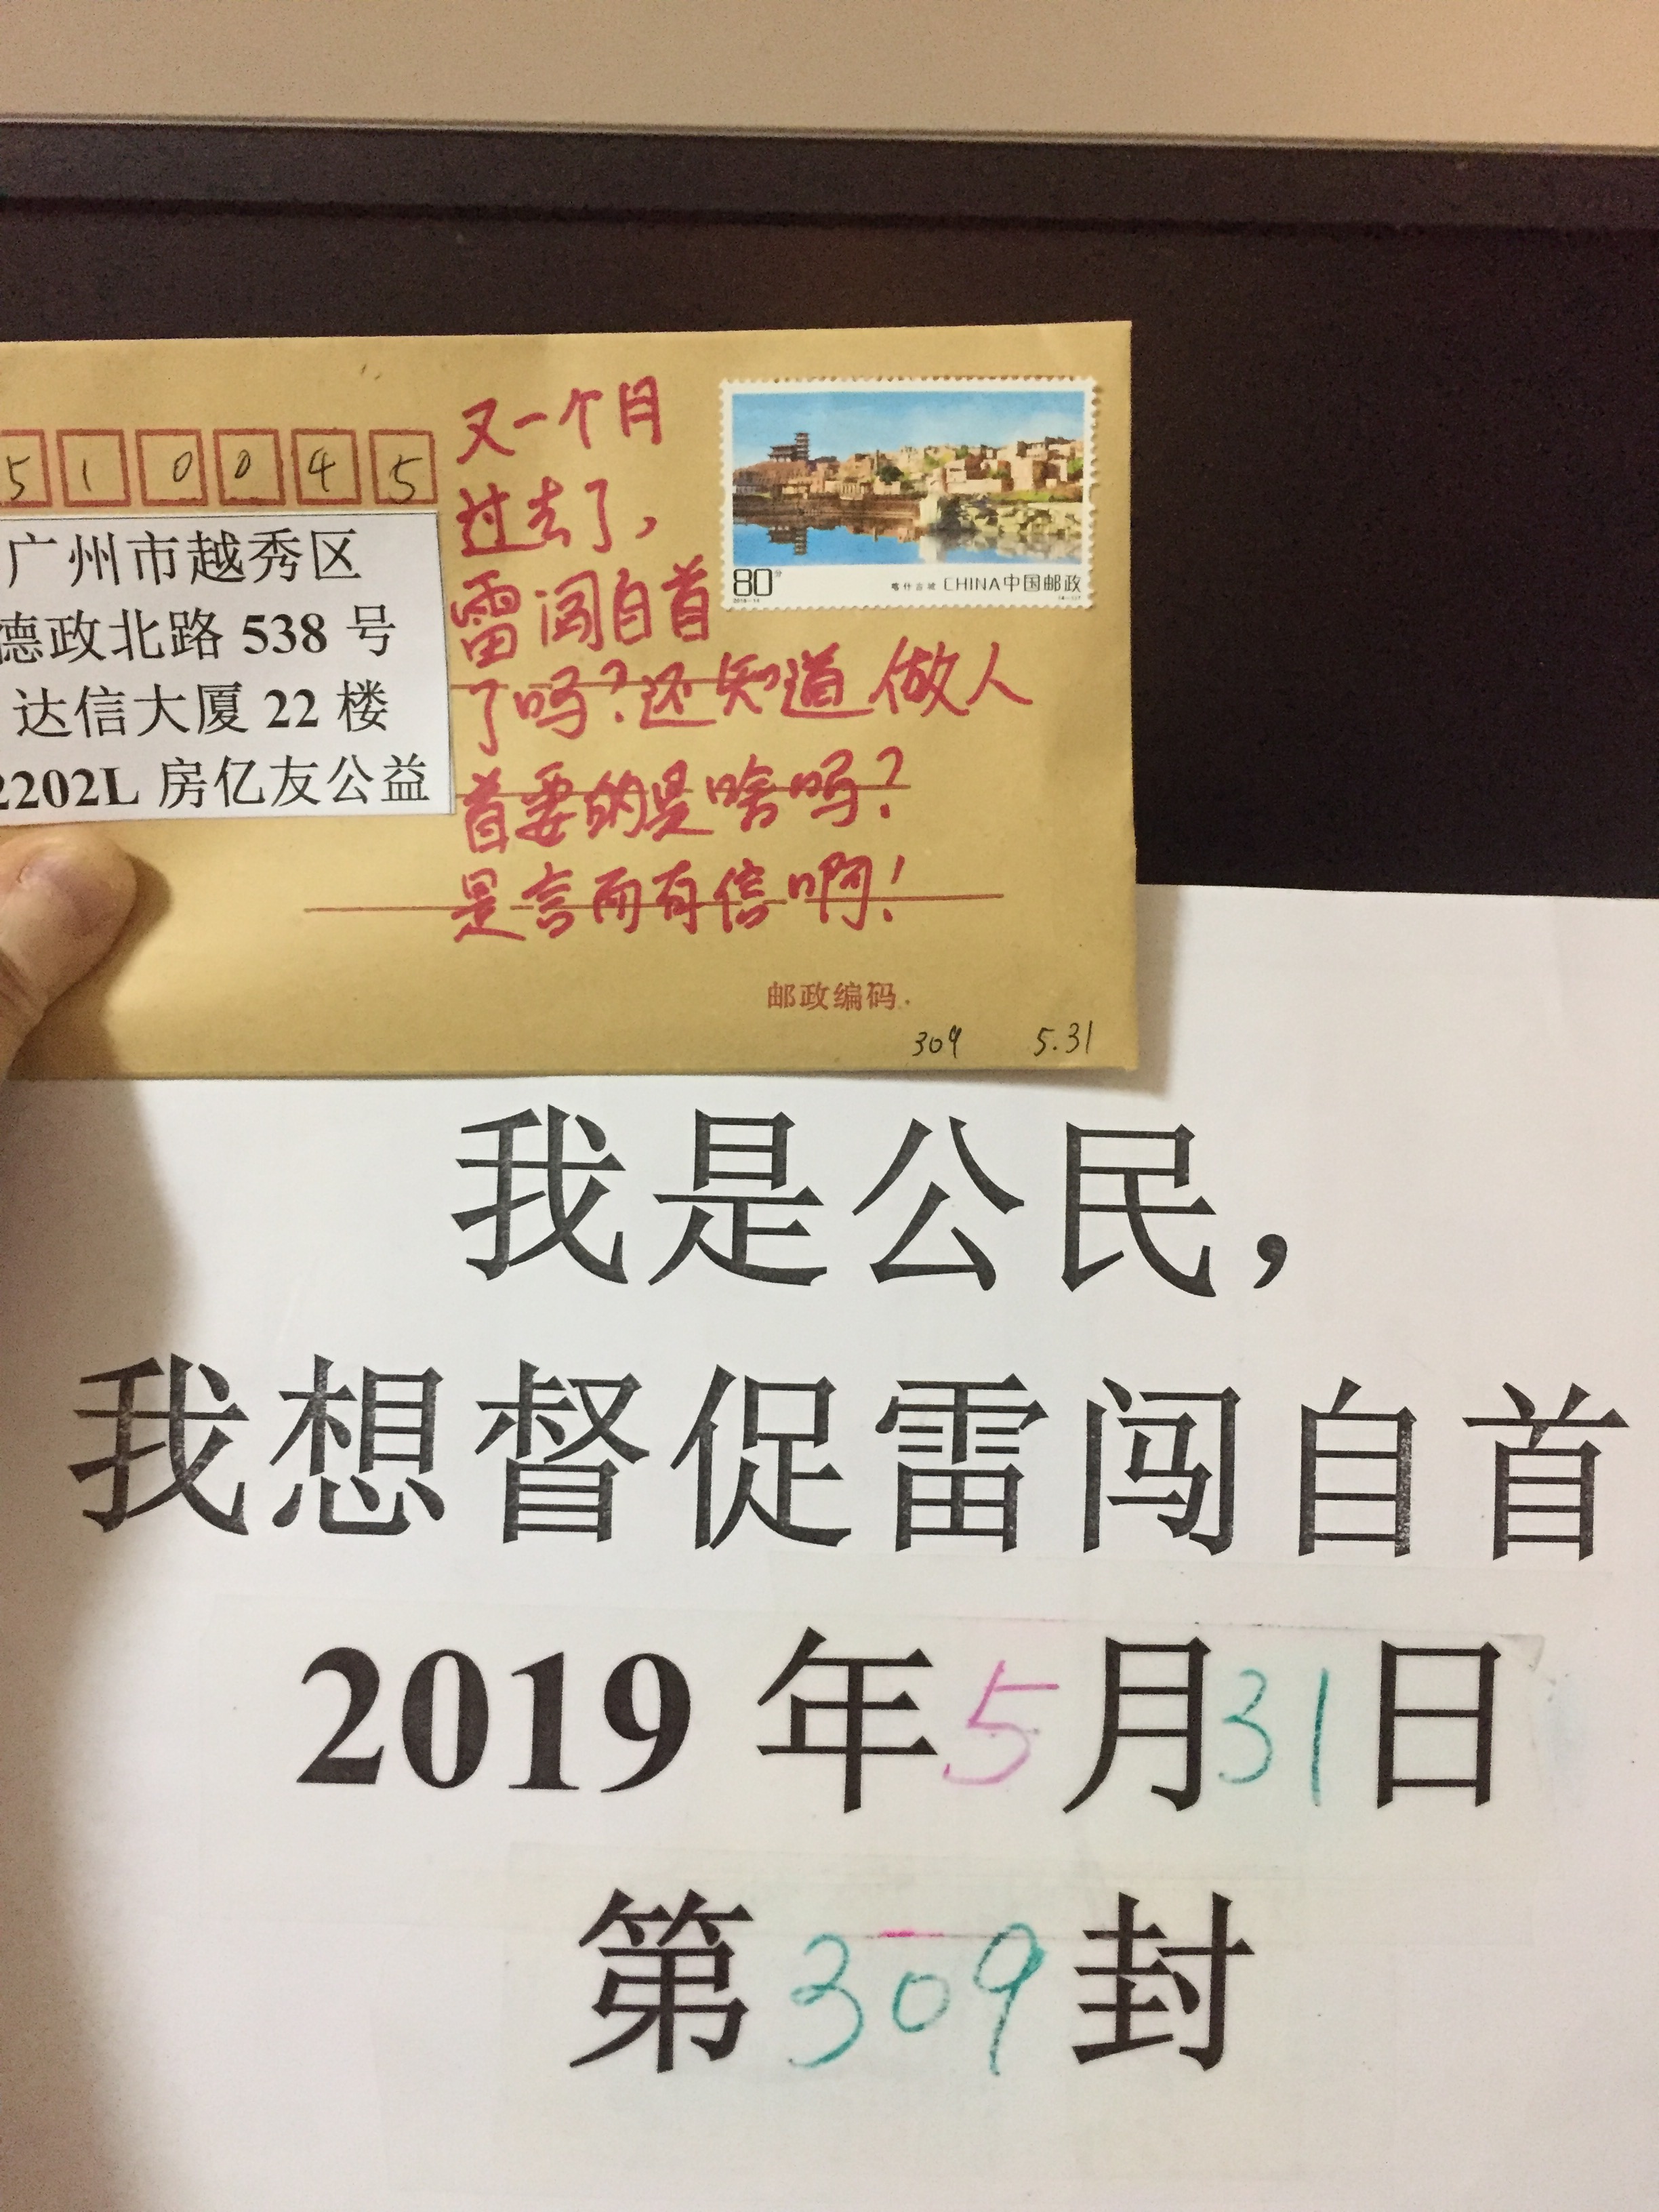 510045
广州市越秀区
德政北路 538 号
达信大厦 22 楼
2202L 房亿友公益
又一个月
过去了，
雷闯自首
了吗？还知道做人
首要的是啥吗？
是言而有信啊！
80分
喀什古城 CHINA中国邮政
邮政编码
309 5.31
我是公民，
我想督促雷闯自首
2019 年 5 月 31 日
第 309 封